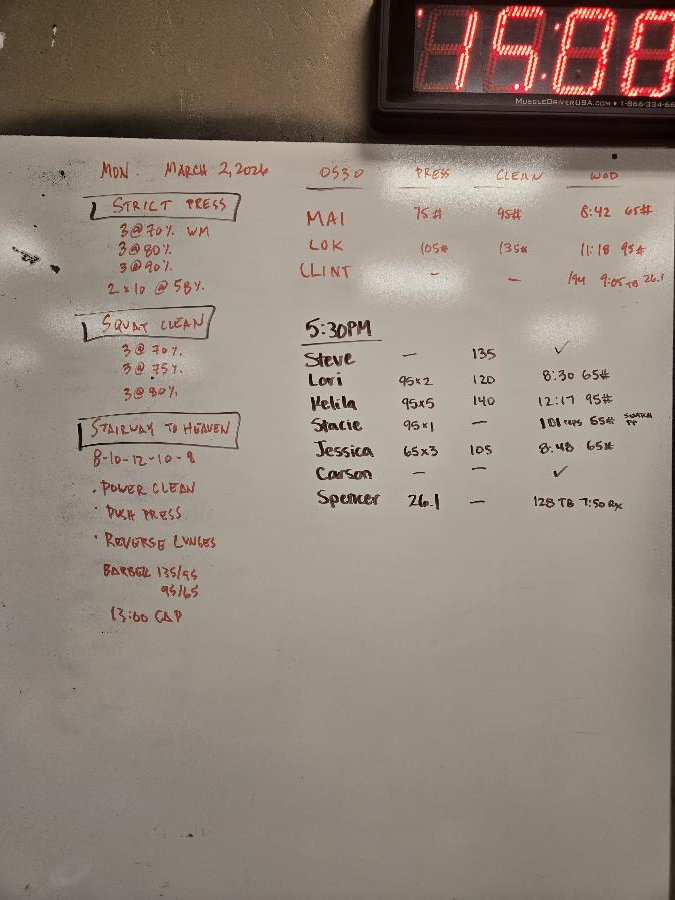 15:00
MUSCLEDRIVERUSA.COM • 1-866-334-66
MON. MARCH 2, 2026
STRICT PRESS
3@70% WM
3@80%
3@90%
2x10 @ 58%
SQUAT CLEAN
3@70%
3@75%
3@80%
STAIRWAY TO HEAVEN
8-10-12-10-8
• POWER CLEAN
• PUSH PRESS
• REVERSE LUNGES
BARBELL 135/95
95/65
13:00 CAP
0530 PRESS CLEAN WOD
MAI 75# 95# 8:42 65#
LOK 105# 135# 11:18 95#
CLINT - - 194 9:05 TB 26.1
5:30PM
Steve — 135 ✓
Lori 95x2 120 8:30 65#
Kelila 95x5 140 12:17 95#
Stacie 95x1 — 101 reps 55#
Jessica 65x3 105 8:48 65#
Carson — — ✓
Spencer 26.1 — 128 TB 7:50 Rx